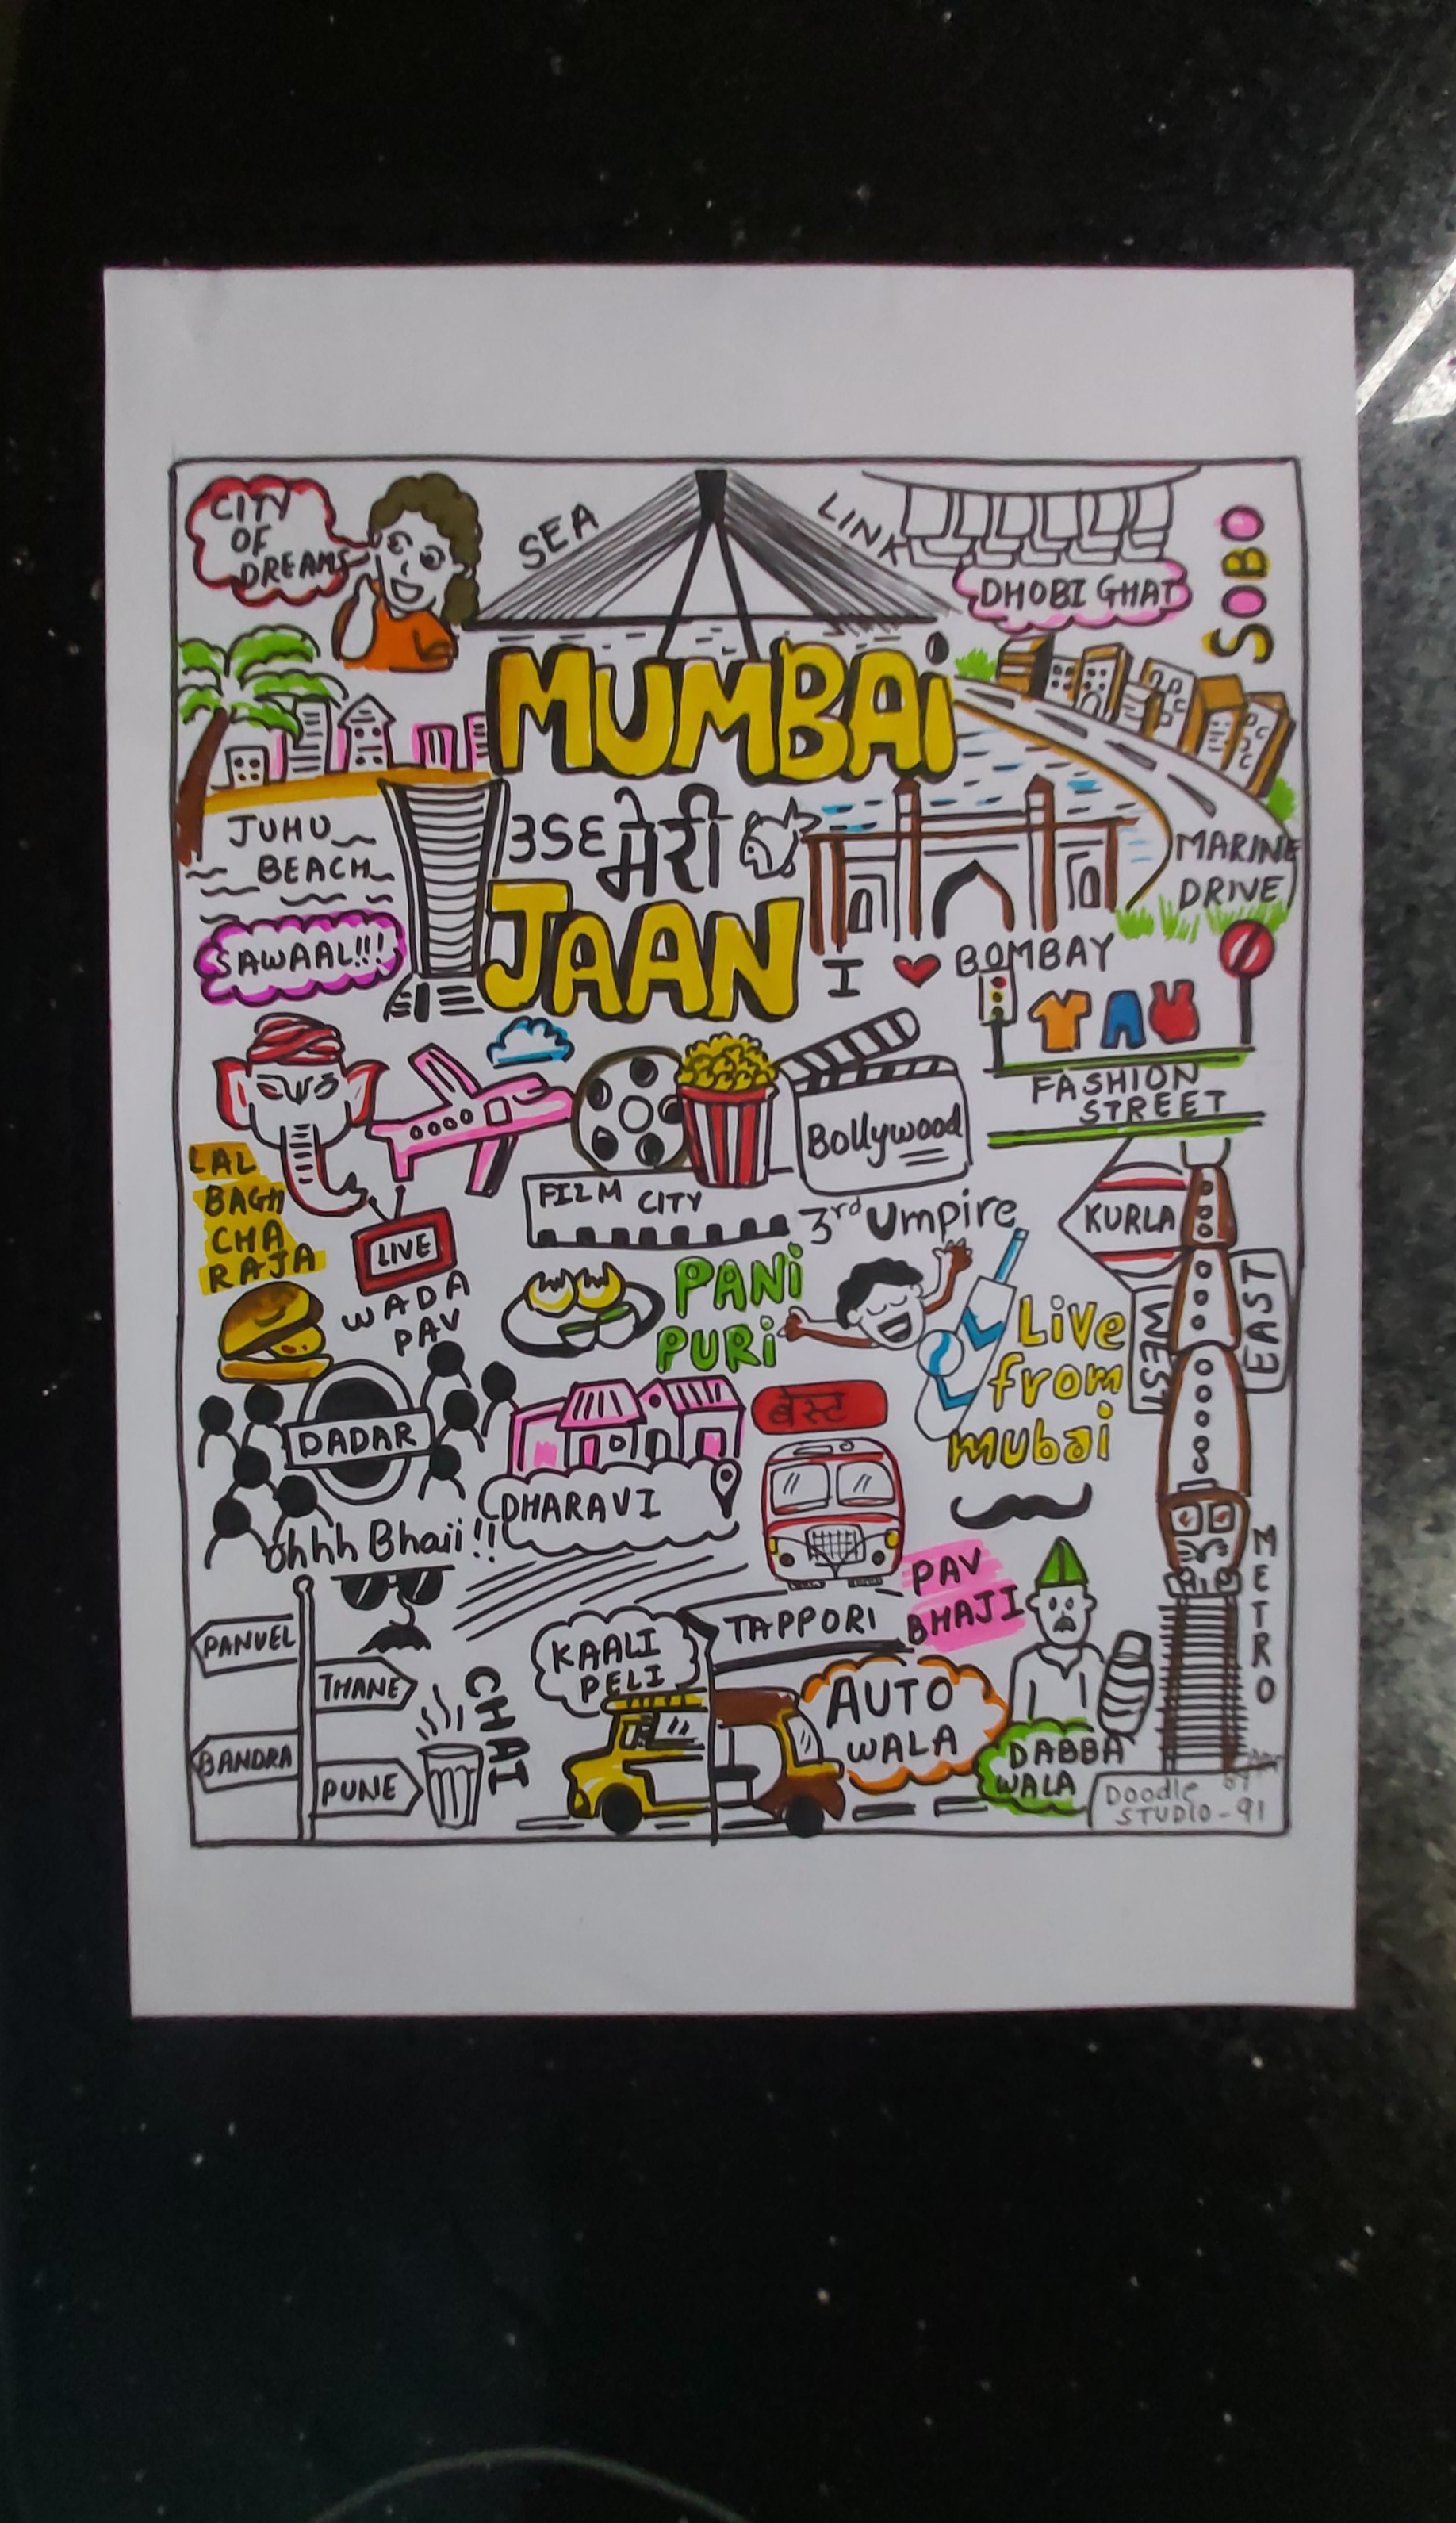 CITY
OF
DREAMS
SEA
LINK
DHOBI GHAT
SOBO
MUMBAI
मेरी
JAAN
JUHU
BEACH
SAWAAL!!!
MARINE
DRIVE
I ❤ BOMBAY
FASHION
STREET
Bollywood
FILM CITY
LAL
BAGH
CHA
RAJA
LIVE
WADA
PAV
3rd Umpire
PANI
PURI
KURLA
WEST
EAST
Live
from
mubai
DADAR
बेस्ट
DHARAVI
ohhh Bhaii !!
METRO
PAV
BHAJI
TAPPORI
KAALI
PELI
AUTO
WALA
DABBA
WALA
PANVEL
THANE
BANDRA
PUNE
CHAI
Doodle by
STUDIO-91